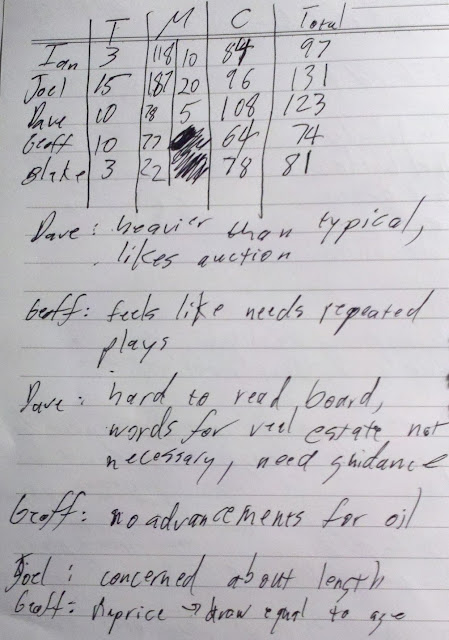 T M C Total
Ian 3 118 10 84 97
Joel 15 187 20 96 131
Dave 10 78 5 108 123
Geoff 10 77 64 74
Blake 3 22 78 81
Dave: heavier than typical,
likes auction
Geoff: feels like needs repeated
plays
Dave: hard to read board,
words for real estate not
necessary, need guidance
Geoff: no advancements for oil
Joel: concerned about length
Geoff: → draw equal to age